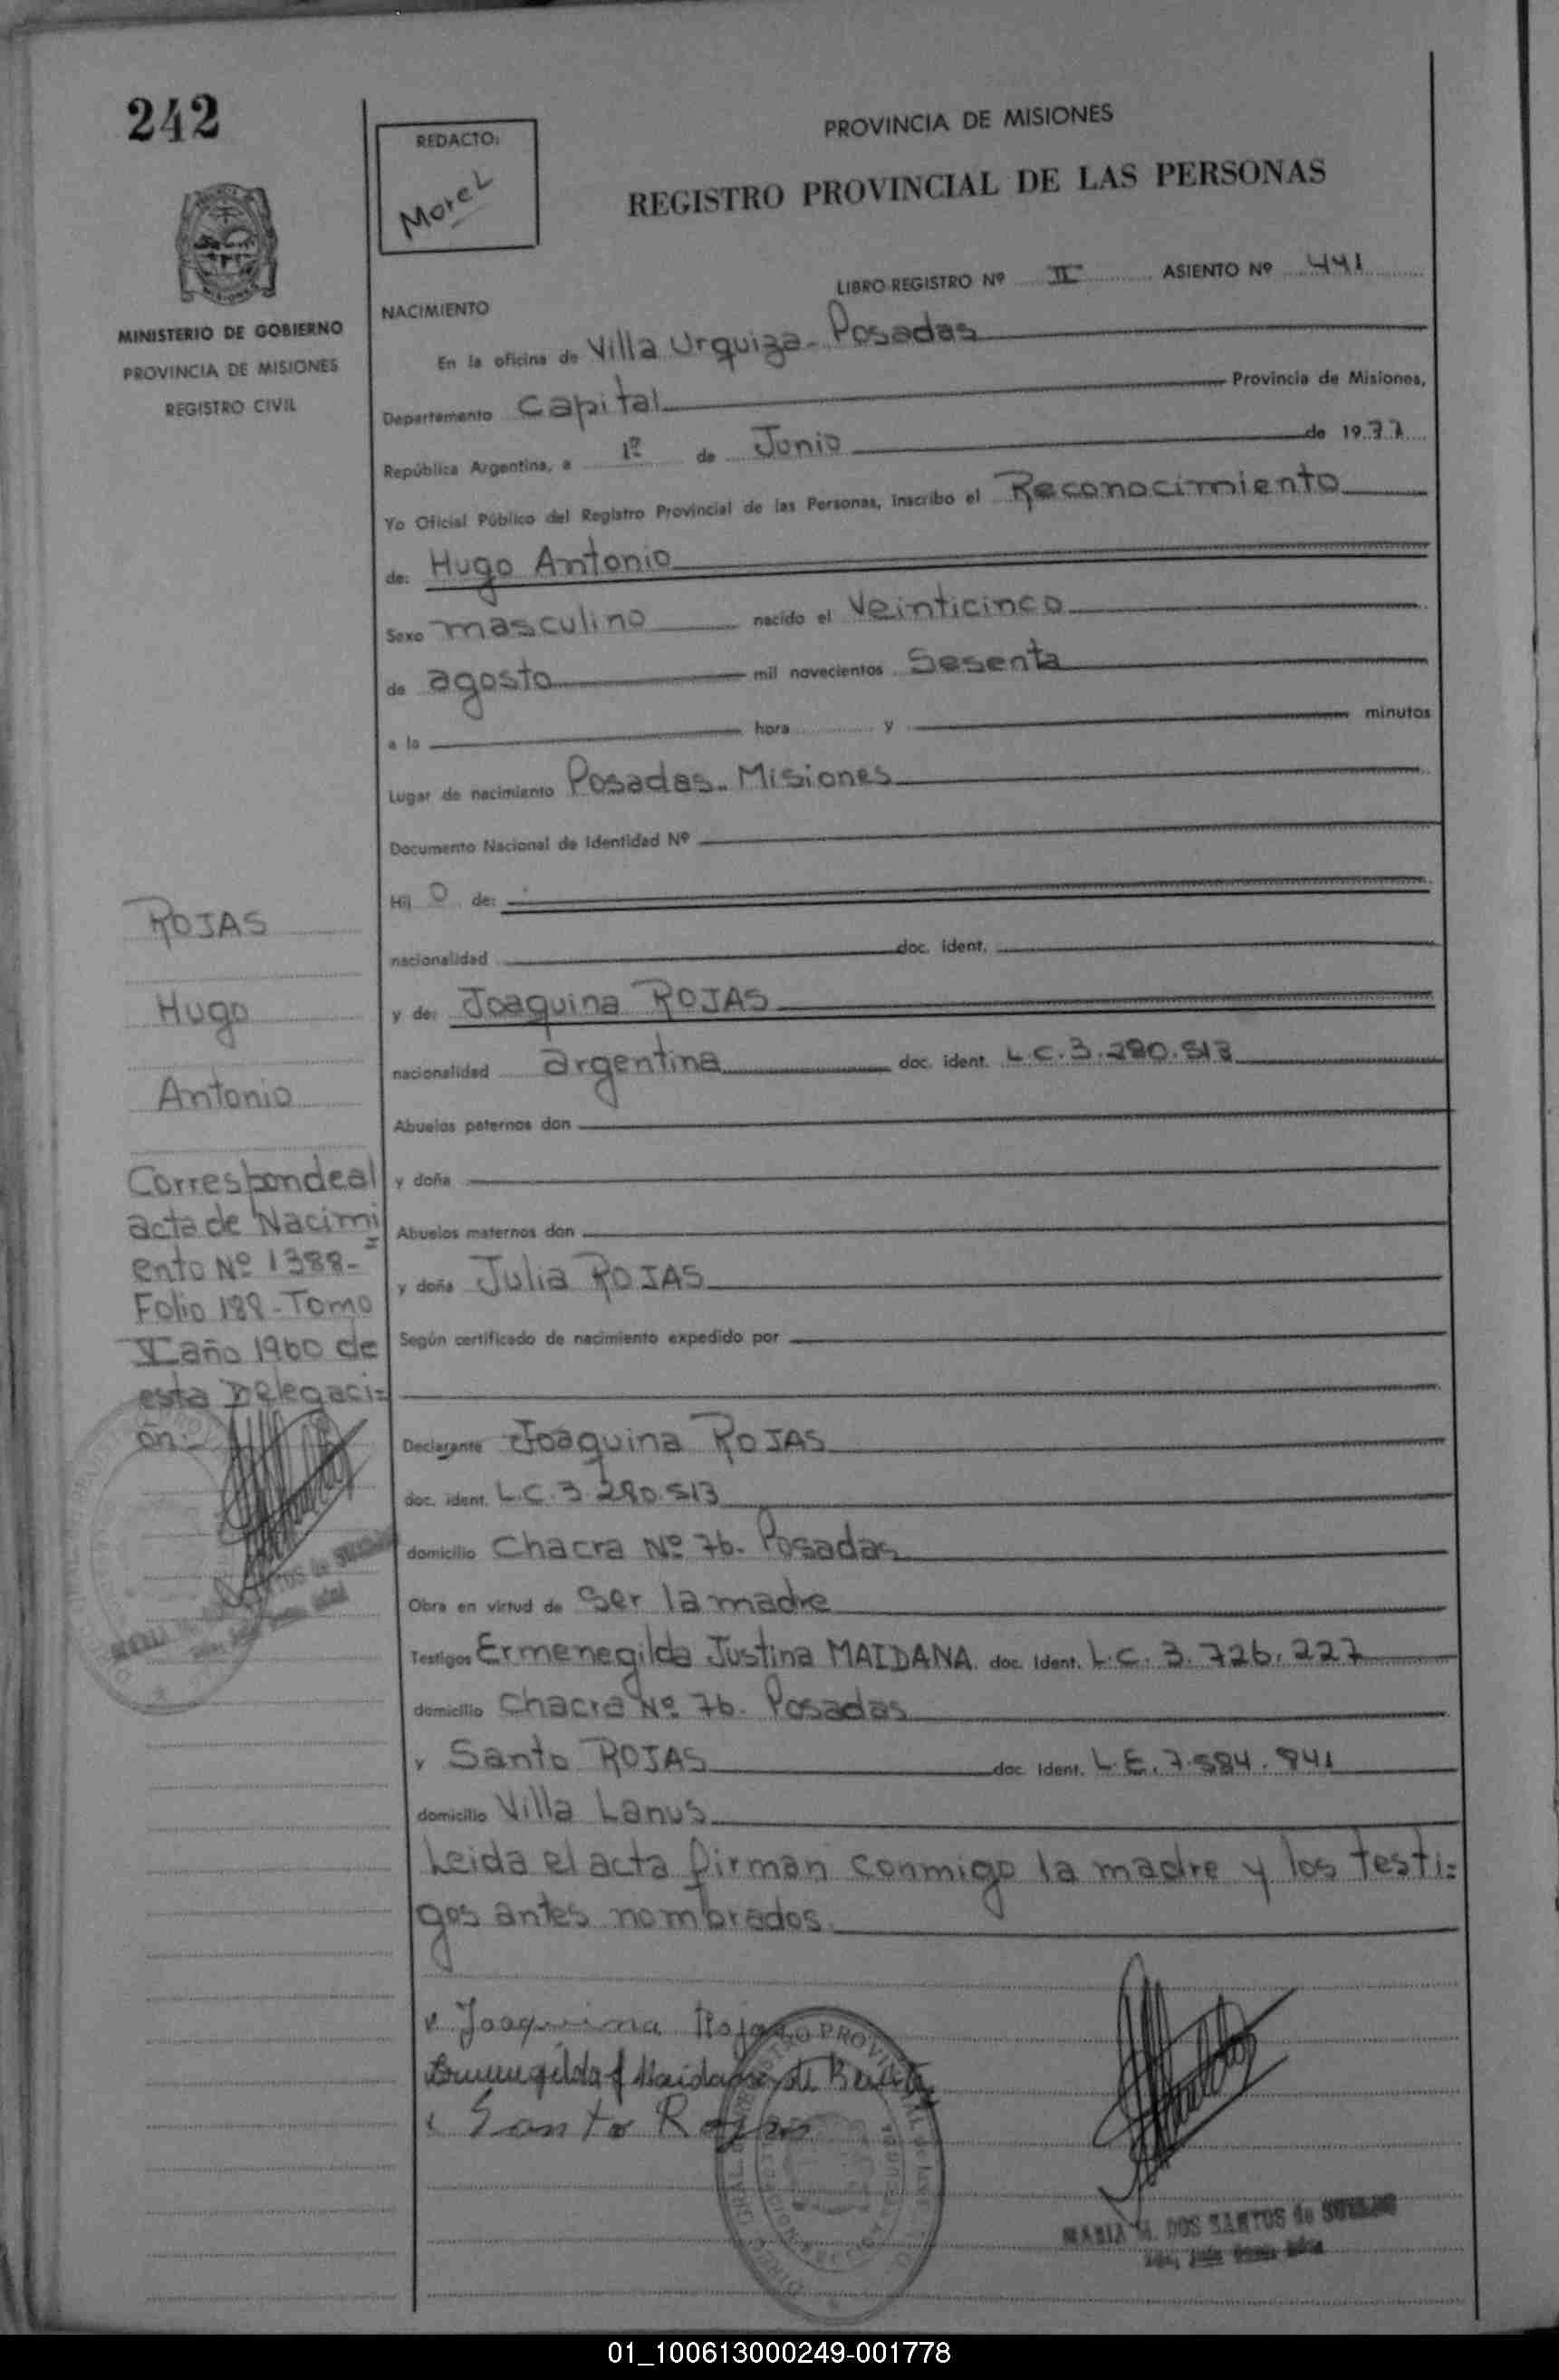 242
REDACTO:
Morel
PROVINCIA DE MISIONES
REGISTRO PROVINCIAL DE LAS PERSONAS
MINISTERIO DE GOBIERNO
PROVINCIA DE MISIONES
REGISTRO CIVIL
LIBRO REGISTRO Nº II ASIENTO Nº 441
NACIMIENTO
En la oficina de Villa Urquiza - Posadas
Departamento Capital Provincia de Misiones,
República Argentina, a 1º de Junio de 1977
Yo Oficial Público del Registro Provincial de las Personas, inscribo el Reconocimiento
de: Hugo Antonio
Sexo masculino nacido el Veinticinco
de agosto mil novecientos Sesenta
a la hora y minutos
Lugar de nacimiento Posadas - Misiones
Documento Nacional de Identidad Nº
Hij o de:
nacionalidad doc. ident.
y de: Joaquina ROJAS
nacionalidad argentina doc. ident. L.C. 3.280.513
Abuelos paternos don
y doña
Abuelos maternos don
y doña Julia ROJAS
Según certificado de nacimiento expedido por
Declarante Joaquina ROJAS
doc. ident. L.C. 3.280.513
domicilio Chacra Nº 76. Posadas
Obra en virtud de Ser la madre
Testigos Ermenegilda Justina MAIDANA doc. Ident. L.C. 3.726.227
domicilio Chacra Nº 76. Posadas
y Santo ROJAS doc. Ident. L.E. 7.584.841
domicilio Villa Lanus
Leida el acta firman conmigo la madre y los testi=
gos antes nombrados.
ROJAS
Hugo
Antonio
Corresponde al
acta de Nacimi=
ento Nº 1388-
Folio 188 - Tomo
V año 1960 de
esta Delegaci=
ón.-
Joaquina Rojas
Santo Rojas
MARIA M. DOS SANTOS de
01_100613000249-001778